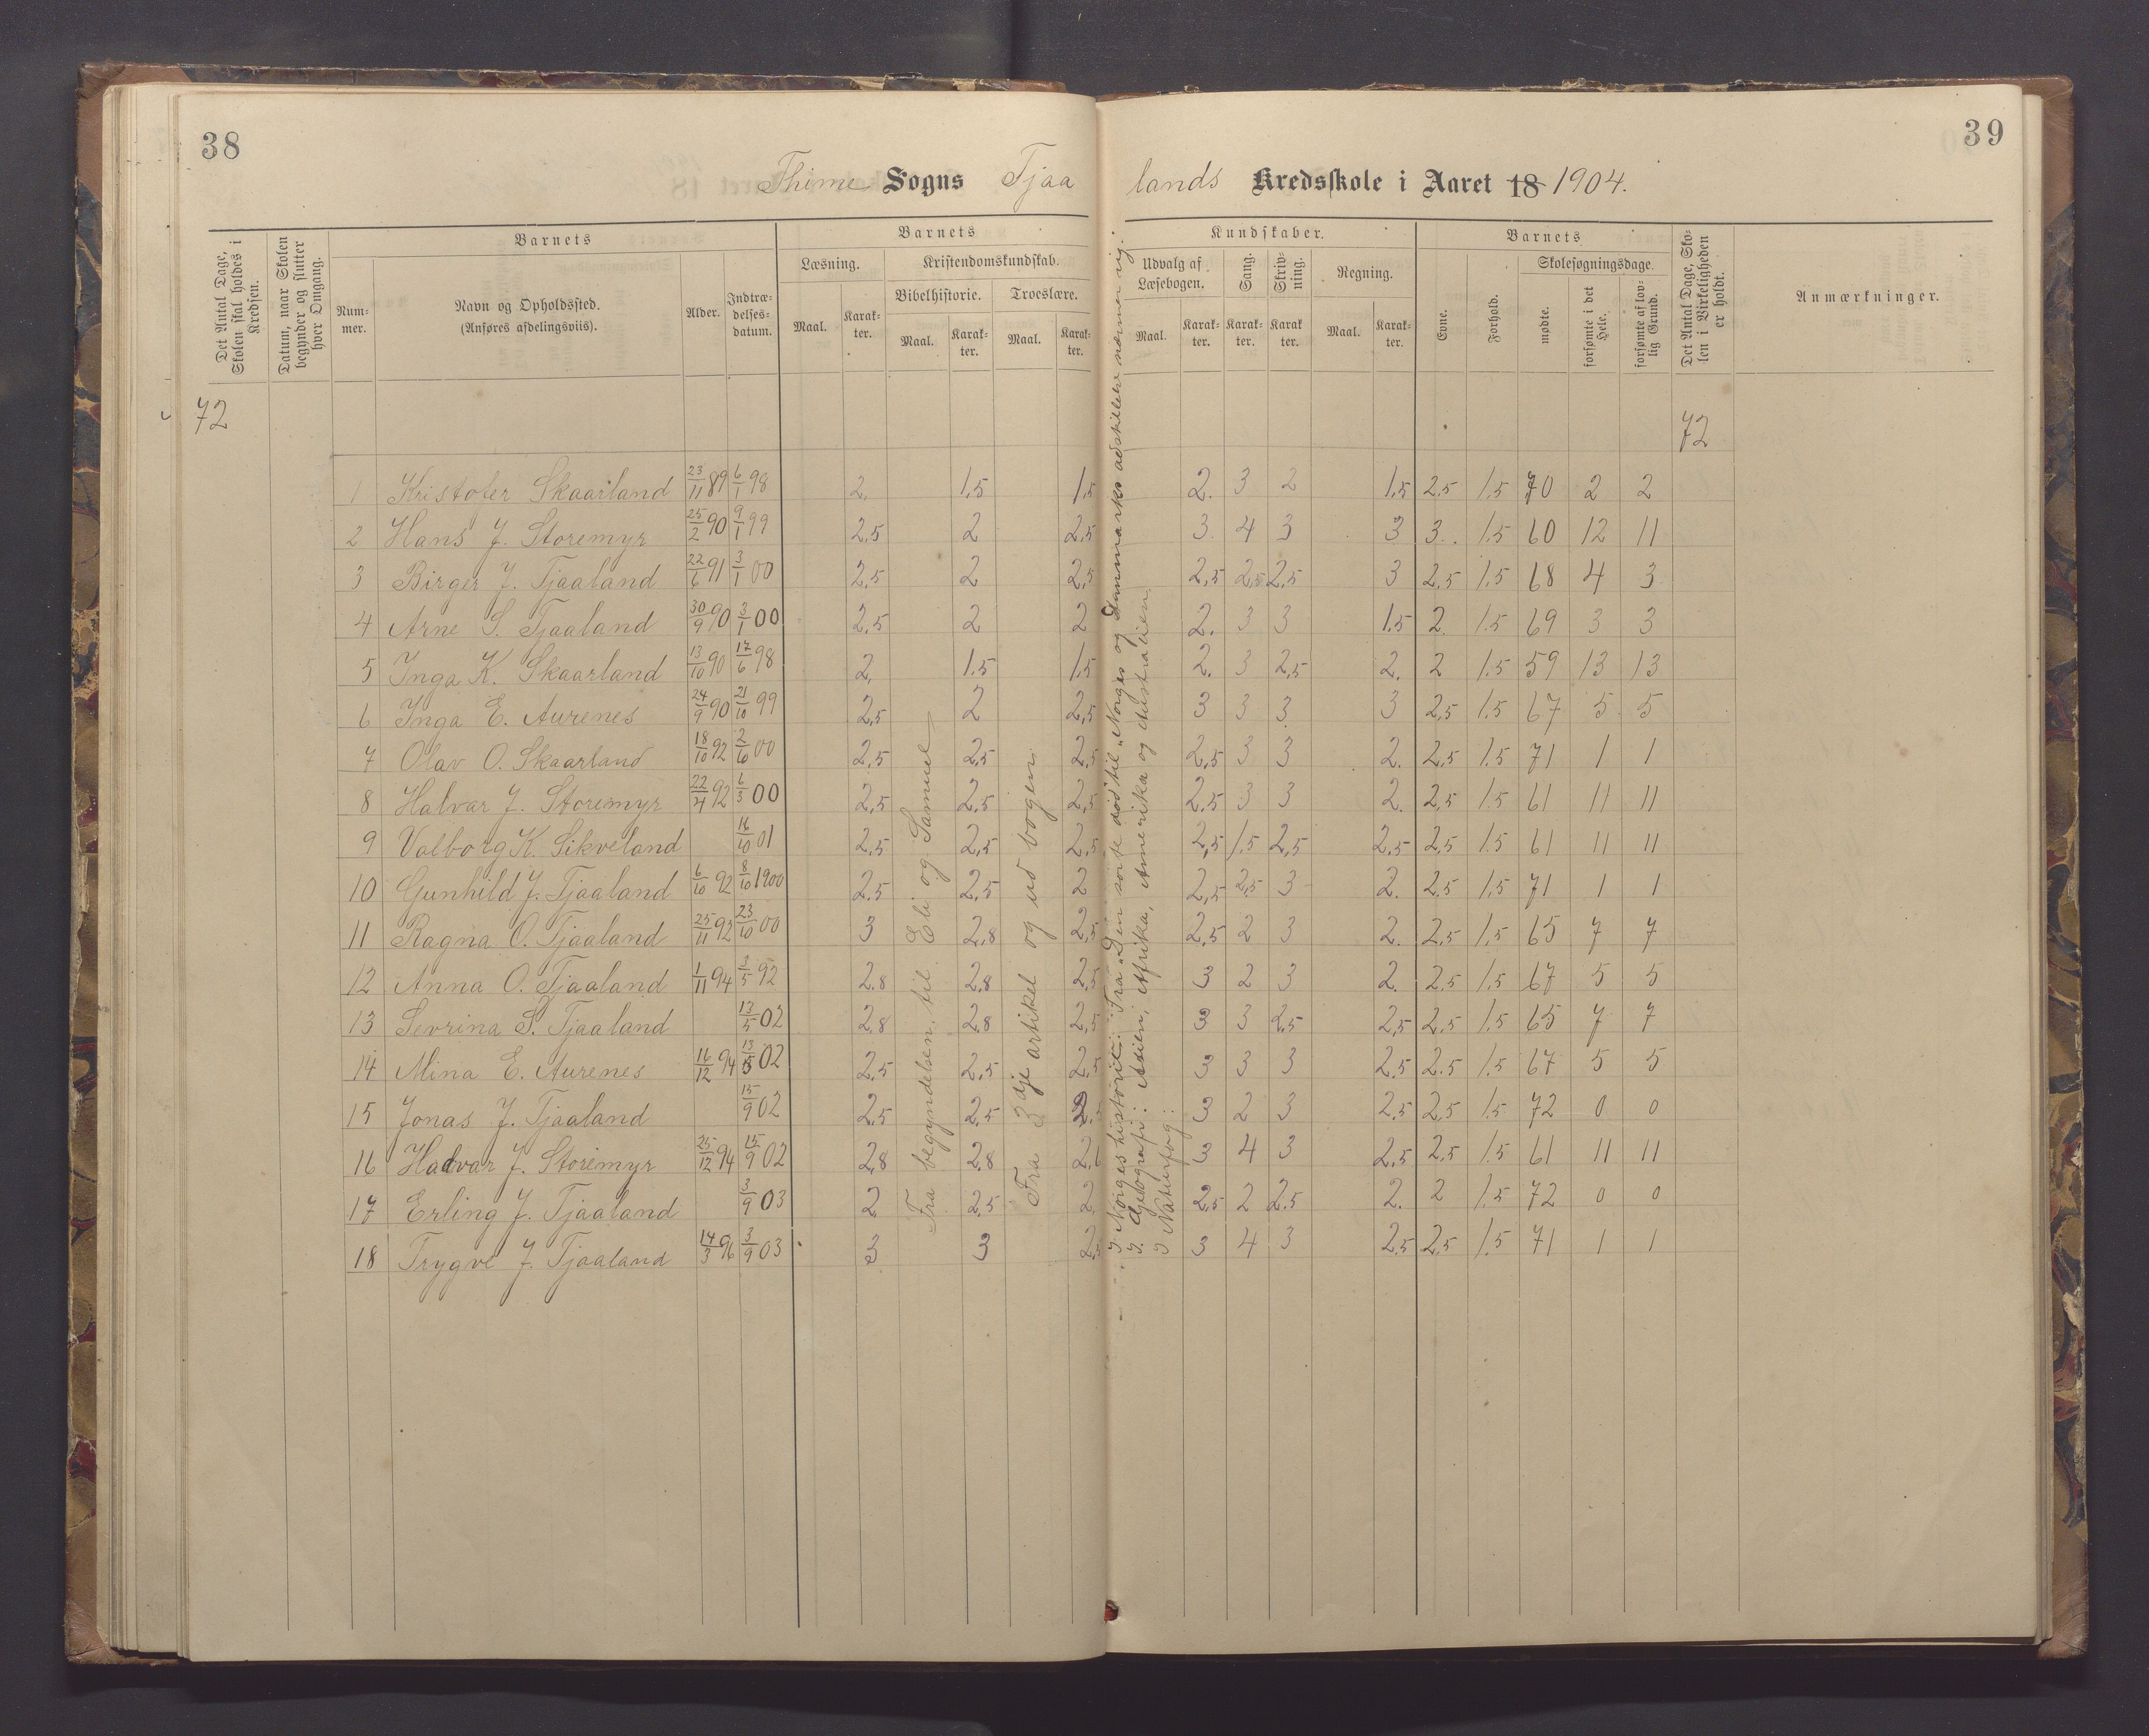 38
39
Thime Sogns Tjaa
lands Kredsskole i Aaret 18 1904.
Det Antal Dage, Skolen skal holdes i Kredsen.
Datum, naar Skolen begynder og slutter hver Omgang.
Barnets
Num-mer.
Navn og Opholdssted.
(Anføres afdelingsviis).
Alder.
Indtræ-delses-datum.
Barnets
Læsning.
Maal.
Karak-ter.
Kristendomskundskab.
Bibelhistorie.
Maal.
Karak-ter.
Troeslære.
Maal.
Karak-ter.
Kundskaber.
Udvalg af Læsebogen.
Maal.
Karak-ter.
Sang.
Karak-ter.
Skriv-ning.
Karak ter.
Regning.
Maal.
Karak-ter.
Barnets
Evne.
Forhold.
Skolesøgningsdage.
mødte.
forsømte i det Hele.
forsømte af lov-lig Grund.
Det Antal Dage, Sko-len i Virkeligheden er holdt.
Anmærkninger.
72
72
1 Kristofer Skaarland 23/11 89 6/1 98 2. 1,5 1,5 2. 3 2 1,5 2,5 1,5 70 2 2
2 Hans J. Storemyr 25/2 90 9/1 99 2,5 2 2,5 3 4 3 3 3. 1,5 60 12 11
3 Birger J. Tjaaland 22/6 91 3/1 00 2,5 2 2,5 2,5 2,5 2,5 3 2,5 1,5 68 4 3
4 Arne S. Tjaaland 30/9 90 3/1 00 2,5 2 2 2. 3 3 1,5 2. 1,5 69 3 3
5 Inga K. Skaarland 13/10 90 17/6 98 2. 1,5 1,5 2. 3 2,5 2. 2 1,5 59 13 13
6 Inga E. Aurenes 24/9 90 21/10 99 2,5 2 2,5 3 3 3 3 2,5 1,5 67 5 5
7 Olav O. Skaarland 18/10 92 2/10 00 2,5 2,5 2,5 2,5 3 3 2. 2,5 1,5 71 1 1
8 Halvar J. Storemyr 22/4 92 6/3 00 2,5 2,5 2,5 2,5 3 3 2. 2,5 1,5 61 11 11
9 Valborg K. Sikveland 16/10 01 2,5 2,5 2,5 2,5 1,5 2,5 2,5 2,5 1,5 61 11 11
10 Gunhild J. Tjaaland 6/10 92 8/10 1900 2,5 2,5 2 2,5 2,5 3 2. 2,5 1,5 71 1 1
11 Ragna O. Tjaaland 25/11 92 23/10 00 3 2,8 2,5 2,5 2 3 2. 2,5 1,5 65 7 7
12 Anna O. Tjaaland 1/11 94 3/5 92 2,8 2,8 2,5 3 2 3 2. 2,5 1,5 67 5 5
13 Sevrina S. Tjaaland 13/5 02 2,8 2,8 2,5 3 3 2,5 2,5 2,5 1,5 65 7 7
14 Mina E. Aurenes 16/12 94 13/5 02 2,5 2,5 2,5 3 3 3 2,5 2,5 1,5 67 5 5
15 Jonas J. Tjaaland 15/9 02 2,5 2,5 2,5 3 2 3 2,5 2,5 1,5 72 0 0
16 Hadvar J. Storemyr 25/12 94 15/9 02 2,8 2,8 3 4 3 2,5 2,5 1,5 61 11 11
17 Erling J. Tjaaland 3/9 03 2 2,5 2 2,5 2 2,5 2. 2 1,5 72 0 0
18 Trygve J. Tjaaland 14/3 96 3/9 03 3 3 2,5 3 4 3 2,5 2,5 1,5 71 1 1
Fra begyndelsen til Eli og Samuel
Fra 3dje artikel og ud bogen
I Norgeshistorie: Fra „Den sorte død" til „Norges og Danmarks adskillelse nærmer sig."
I Geografi: Asien, Afrika, Amerika og Australien
I Naturfag: